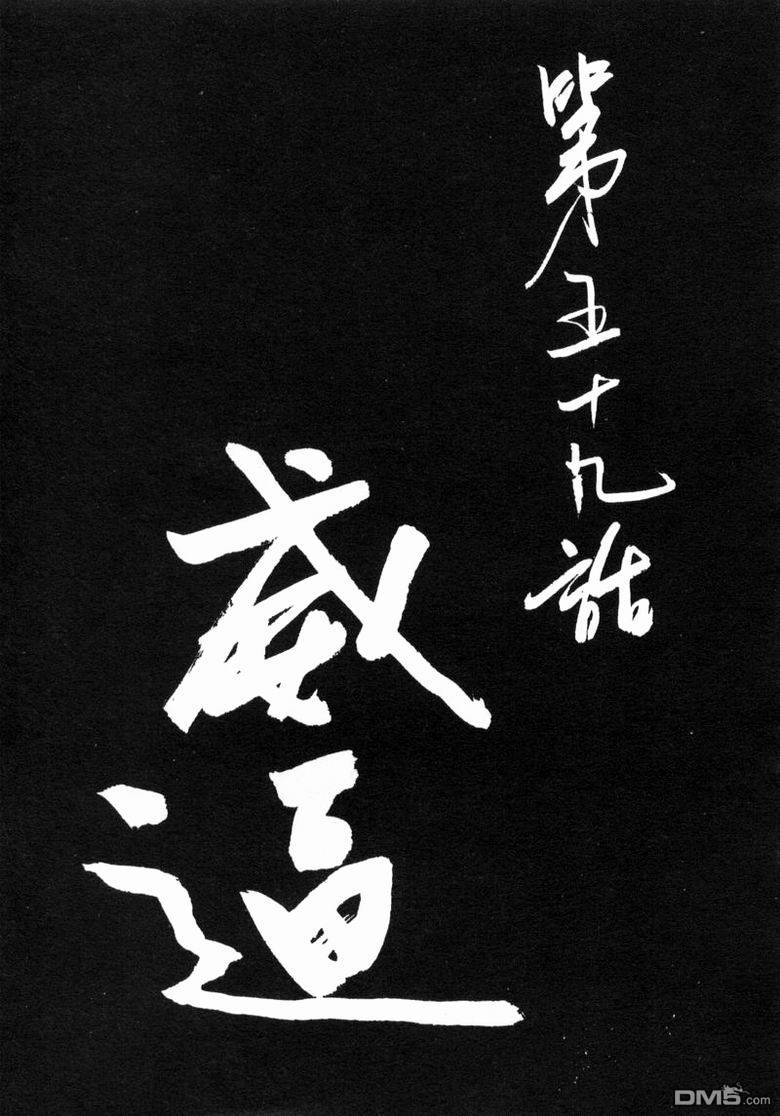 第五十九話
威逼
DM5.com